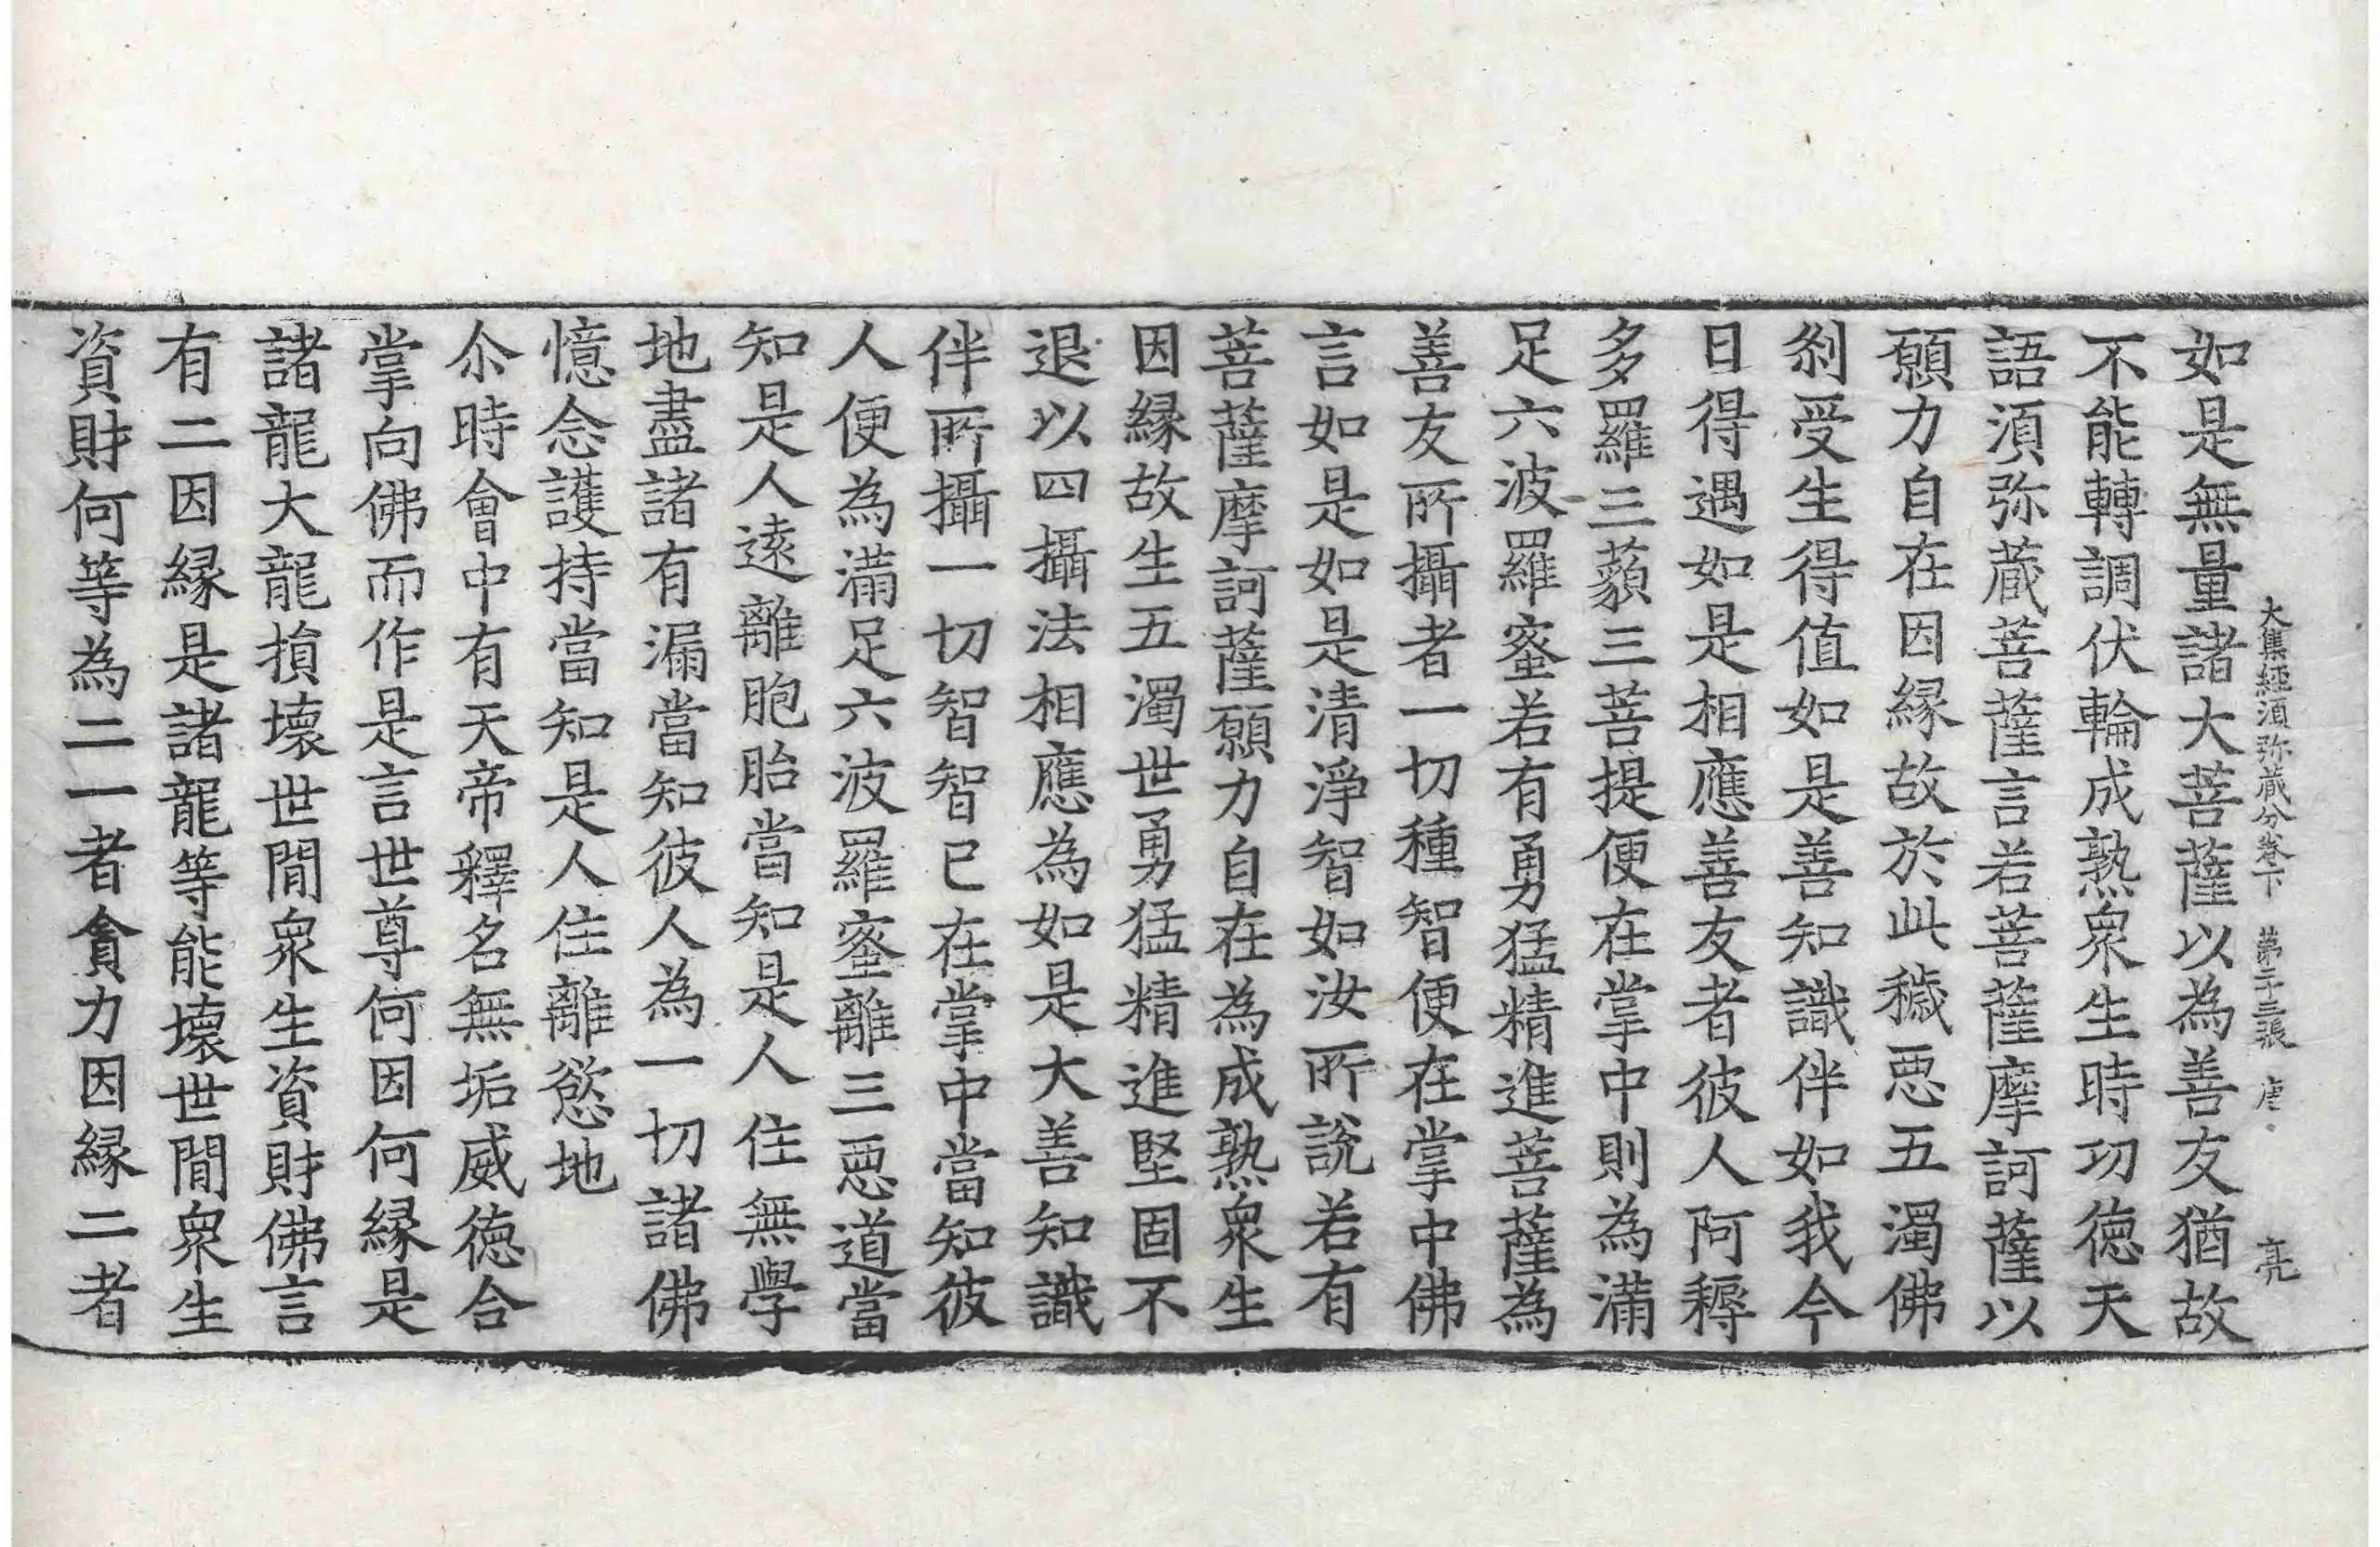 大集經湏弥蔵分卷下 第二十三張 唐 亮
如是無量諸大菩薩以為善友猶故
不能轉調伏輪成熟衆生時功徳天
語湏弥蔵菩薩言若菩薩摩訶薩以
願力自在因縁故於此穢惡五濁佛
刹受生得值如是善知識伴如我今
日得遇如是相應善友者彼人阿耨
多羅三藐三菩提便在掌中則為滿
足六波羅蜜若有勇猛精進菩薩為
善友所攝者一切種智便在掌中佛
言如是如是清淨智如汝所說若有
菩薩摩訶薩願力自在為成熟衆生
因縁故生五濁世勇猛精進堅固不
退以四攝法相應為如是大善知識
伴所攝一切智智已在掌中當知彼
人便為滿足六波羅蜜離三惡道當
知是人遠離胞胎當知是人住無學
地盡諸有漏當知彼人為一切諸佛
憶念護持當知是人住離慾地
尒時會中有天帝釋名無垢威徳合
掌向佛而作是言世尊何因何縁是
諸龍大龍損壞世間衆生資財佛言
有二因縁是諸龍等能壞世間衆生
資財何等為二一者貪力因縁二者